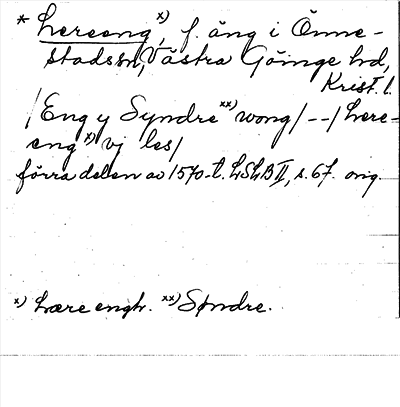 * Lereeng x), f. äng i Önne-
stads sn, Västra Göinge hd,
Krist. l.
/Eng y Syndre xx) wong/--/Lere-
eng x) vj les/
förra delen av 1570-t. LSLB II, s. 67. orig.
x) Lære engh. xx) Søndre.